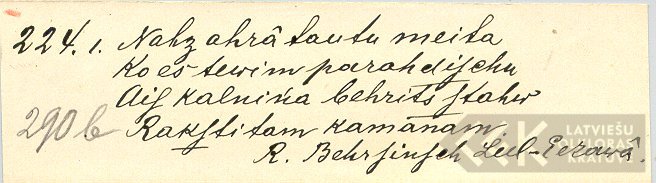 224. 1. Nahz ahrâ tautu meita
Ko es tewim parahdischu
Ais kalniņa behrits stahw
290b Rakstitam kamanam
R. Behrsinsch Leel-Eezawâ.
LATVIEŠU
FOLKLORAS
KRĀTUVE